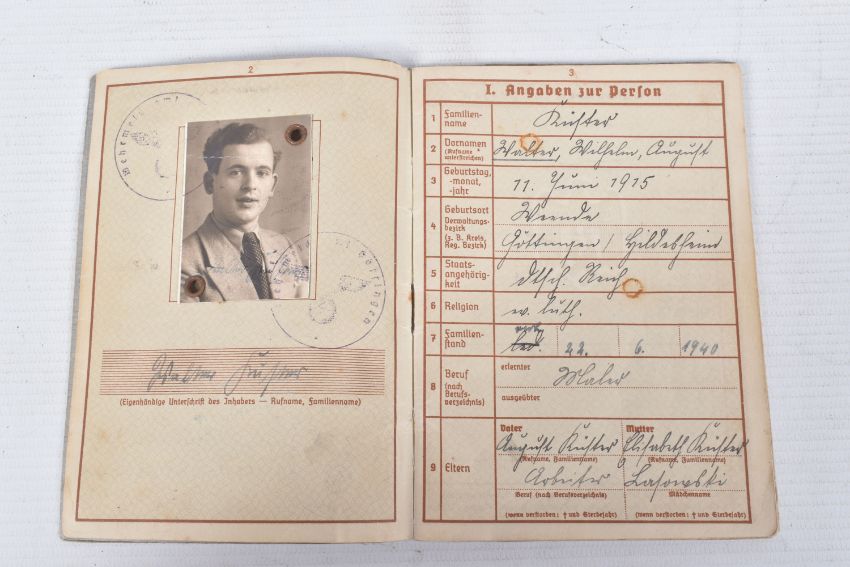 2
Wehrmeldeamt
Göttingen
(Eigenhändige Unterschrift des Inhabers — Rufname, Familienname)
3
I. Angaben zur Person
1 Familien-
name
Küster
2 Vornamen
(Rufname
unterstreichen)
Walter, Wilhelm, August
3 Geburtstag,
-monat,
-jahr
11. Juni 1915
4 Geburtsort
Verwaltungs-
bezirk
(z. B. Kreis,
Reg. Bezirk)
Weende
Göttingen / Hildesheim
5 Staats-
angehörig-
keit
dtsch. Reich
6 Religion
ev. luth.
7 Familien-
stand
led. 22. 6. 1940
8 Beruf
(nach
Berufs-
verzeichnis)
erlernter
Maler
ausgeübter
9 Eltern
Vater Mutter
August Küster Elisabeth Küster
(Rufname, Familienname) (Rufname, Familienname)
Arbeiter Lasowski
Beruf (nach Berufsverzeichnis) Mädchenname
(wenn verstorben: † und Sterbejahr) (wenn verstorben: † und Sterbejahr)